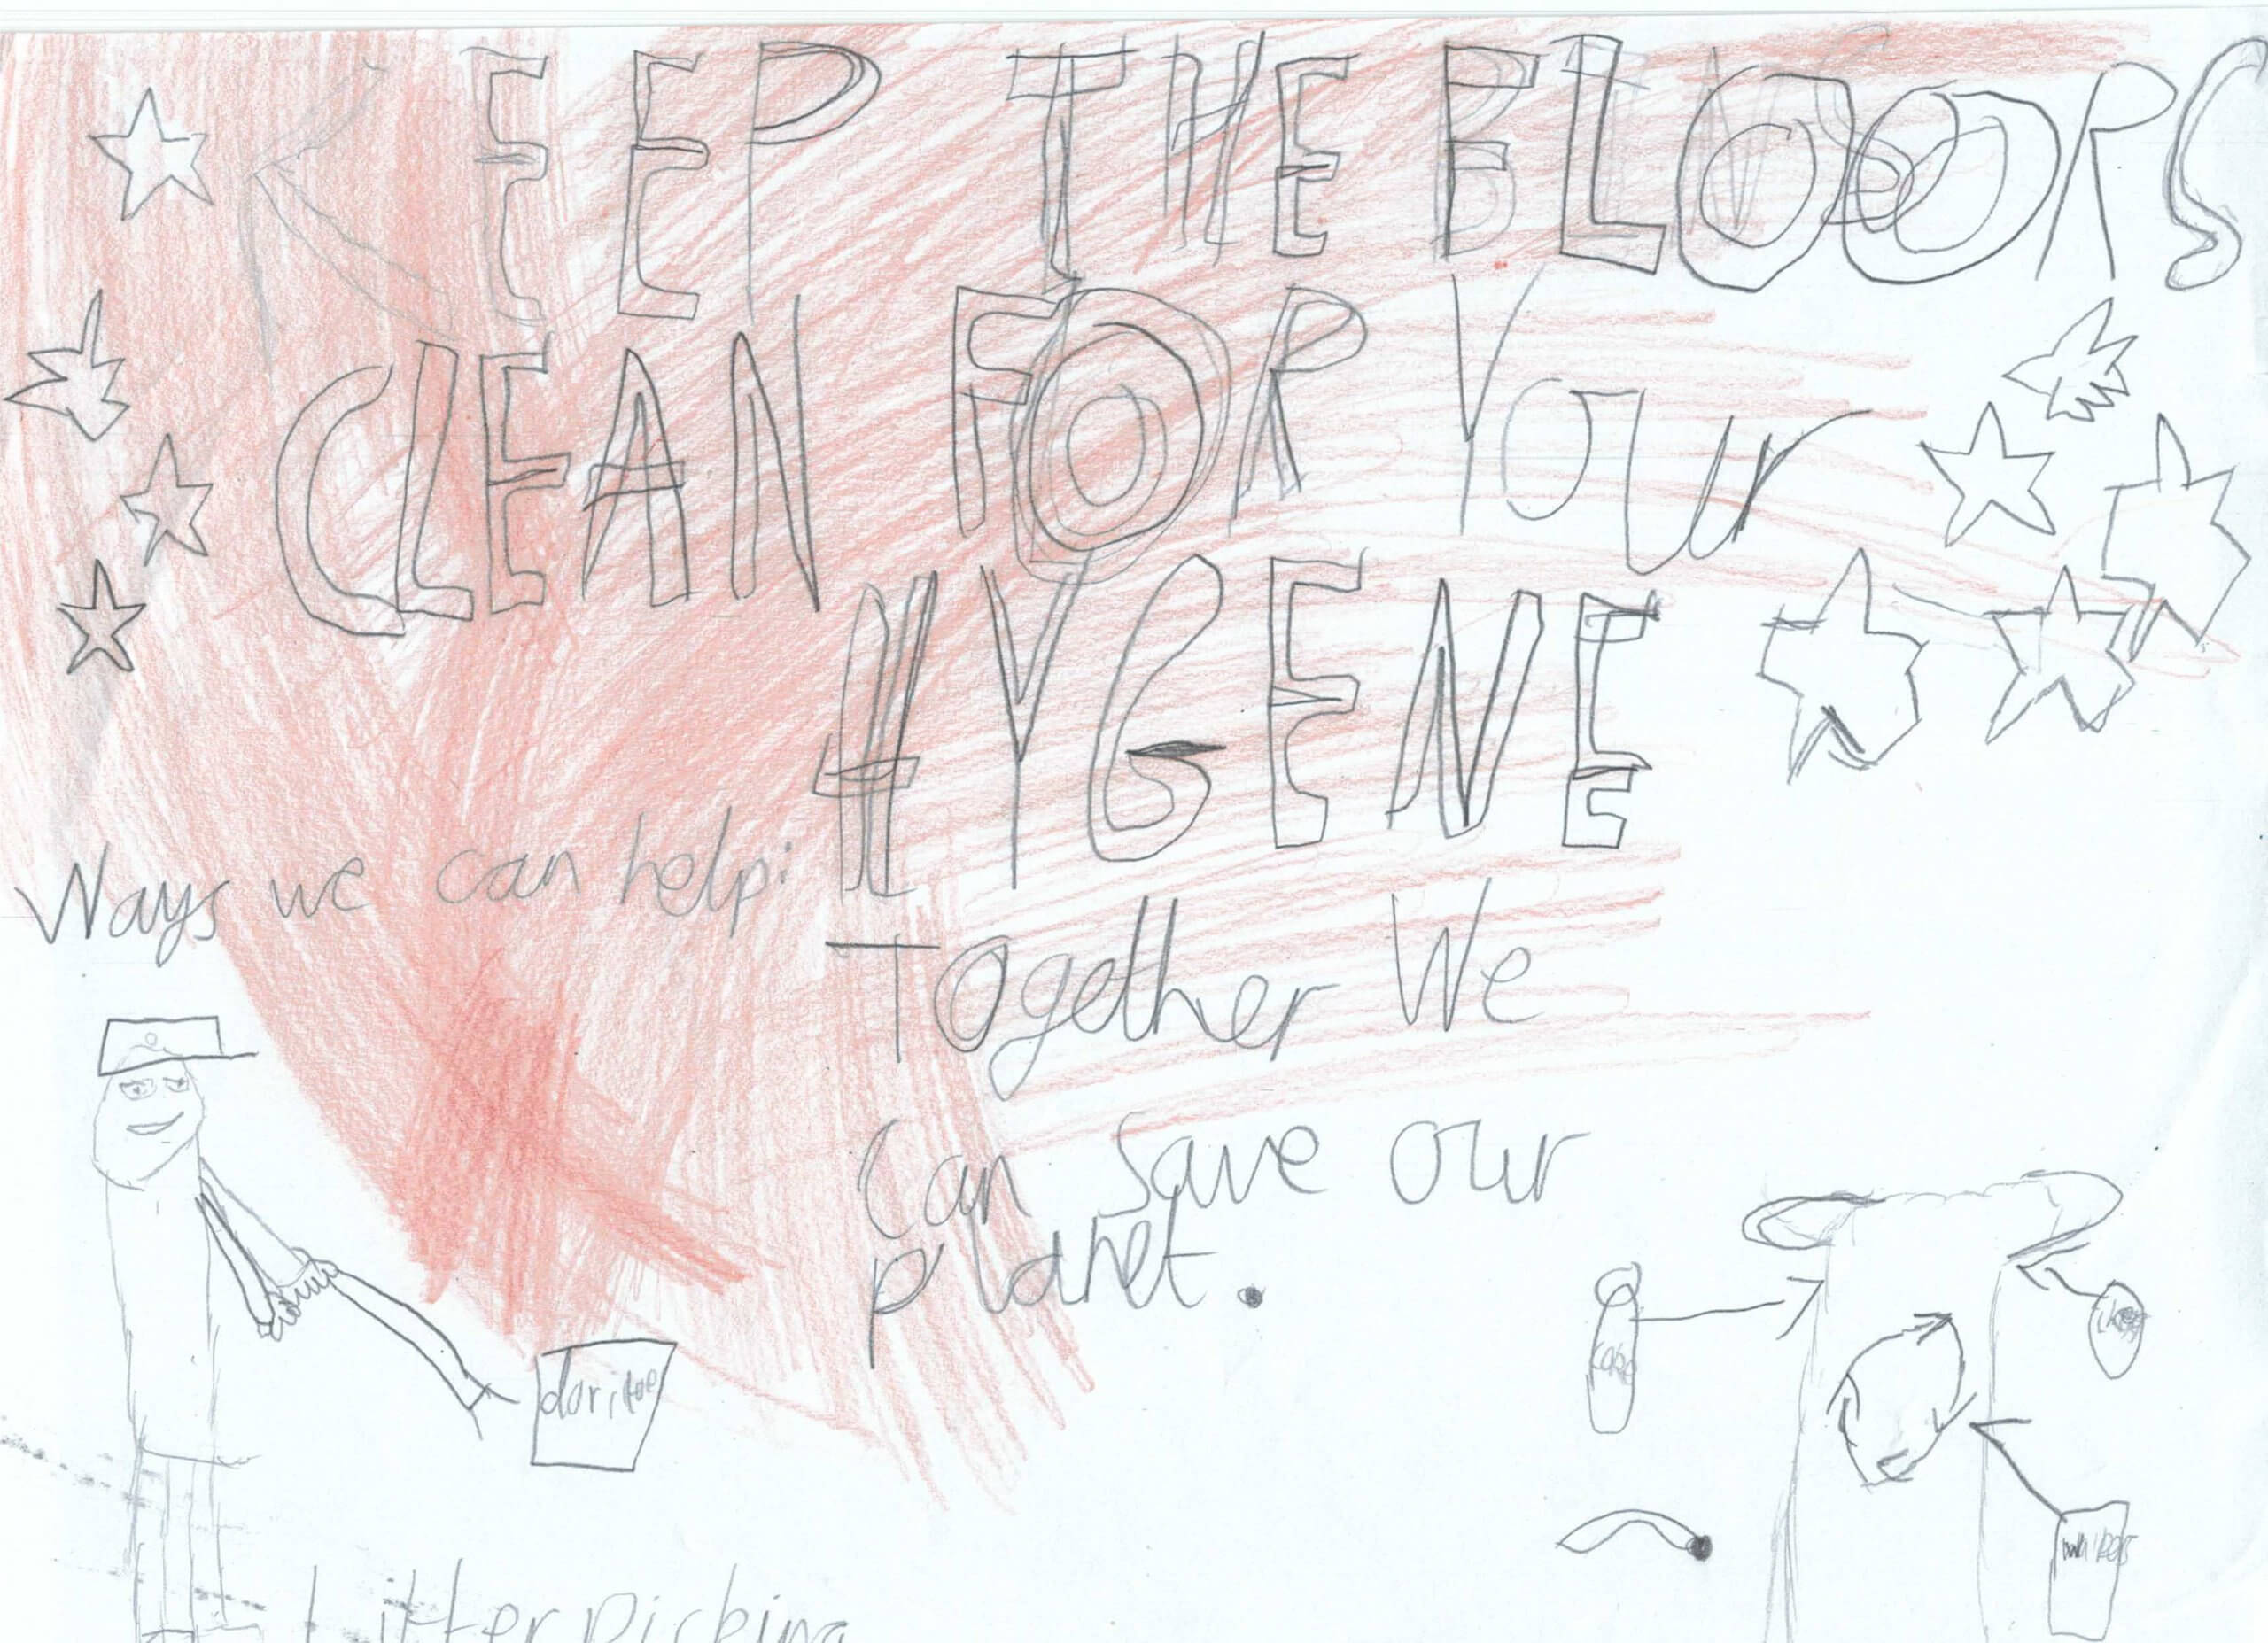 KEEP THE FLOORS
CLEAN FOR YOUr
HYGENE
Ways we can help:
Together We
Can save our
planet.
Litter picking